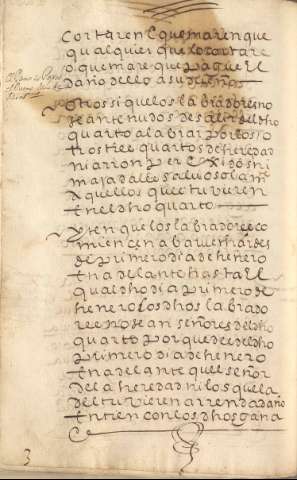 cortaren e quemaren que
qualquier que lo cortare
o quemare que pague el
daño dello a su dueño
otrossi que los labradores no
sean tenudos de salir del dho
quarto a labrar por los o
tros tres quartos de heredad
ni a rronper exidos ni
majadales salvo solam
aquellos que tuvieren
en el dho quarto
yten que los labradores co
miencen a barvechar des
de primero dia de henero
en adelante hasta el
qual dho dia primero de
henero los dhos labrado
res no sean señores del dho
quarto porque desde el dho
primero dia de henero
en adelante que el señor
de la heredad ni los que la
del tuvieren a rrenta no an
entren con los dhos gana
3